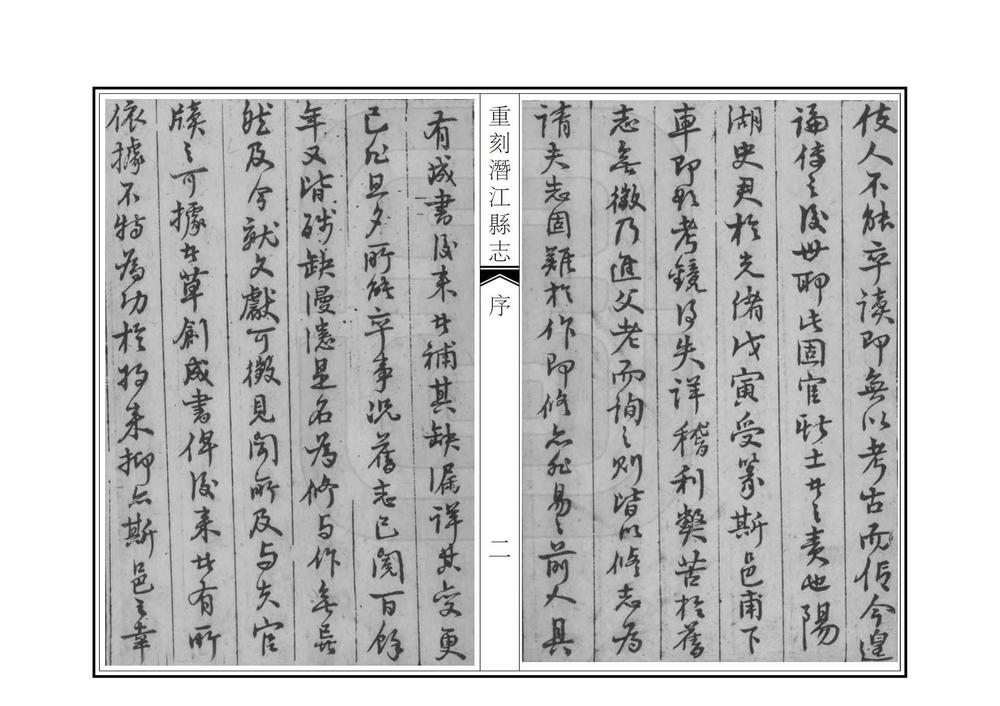 伎人不能卒读即無以考古而信今遑
論传之後世耶此固官斯土者之責也陽
湖史君於光緒戊寅受篆斯邑甫下
車即取考鏡得失详稽利獘苦於舊
志無徵乃進父老而询之则皆以修志為
请夫志固難於作即修亦非易之前人具
重刻潛江縣志
序
二
有成書後来者補其缺漏详其变更
已非旦夕所能卒事况舊志已阅百餘
年又皆残缺漫漶是名為修与作無异
然及今就文獻可徵見闻所及与夫官
牍之可據者草創成書俾後来者有所
依據不特為功於将来抑亦斯邑之幸